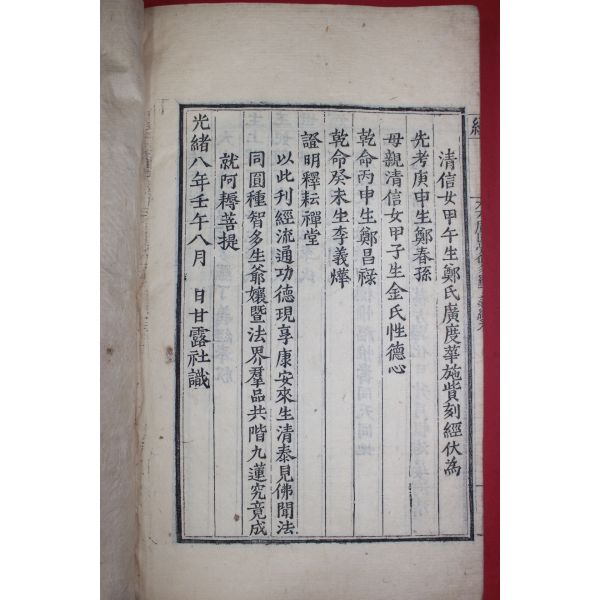 清信女甲午生鄭氏廣度華施貲刻經伏為
先考庚申生鄭春孫
母親清信女甲子生金氏性德心
乾命丙申生鄭昌祿
乾命癸未生李義燁
證明釋耘禪堂
以此刊經流通功德現享康安來生清泰見佛聞法
同圓種智多生爺孃暨法界羣品共階九蓮究竟成
就阿耨菩提
光緒八年壬午八月　日甘露社識